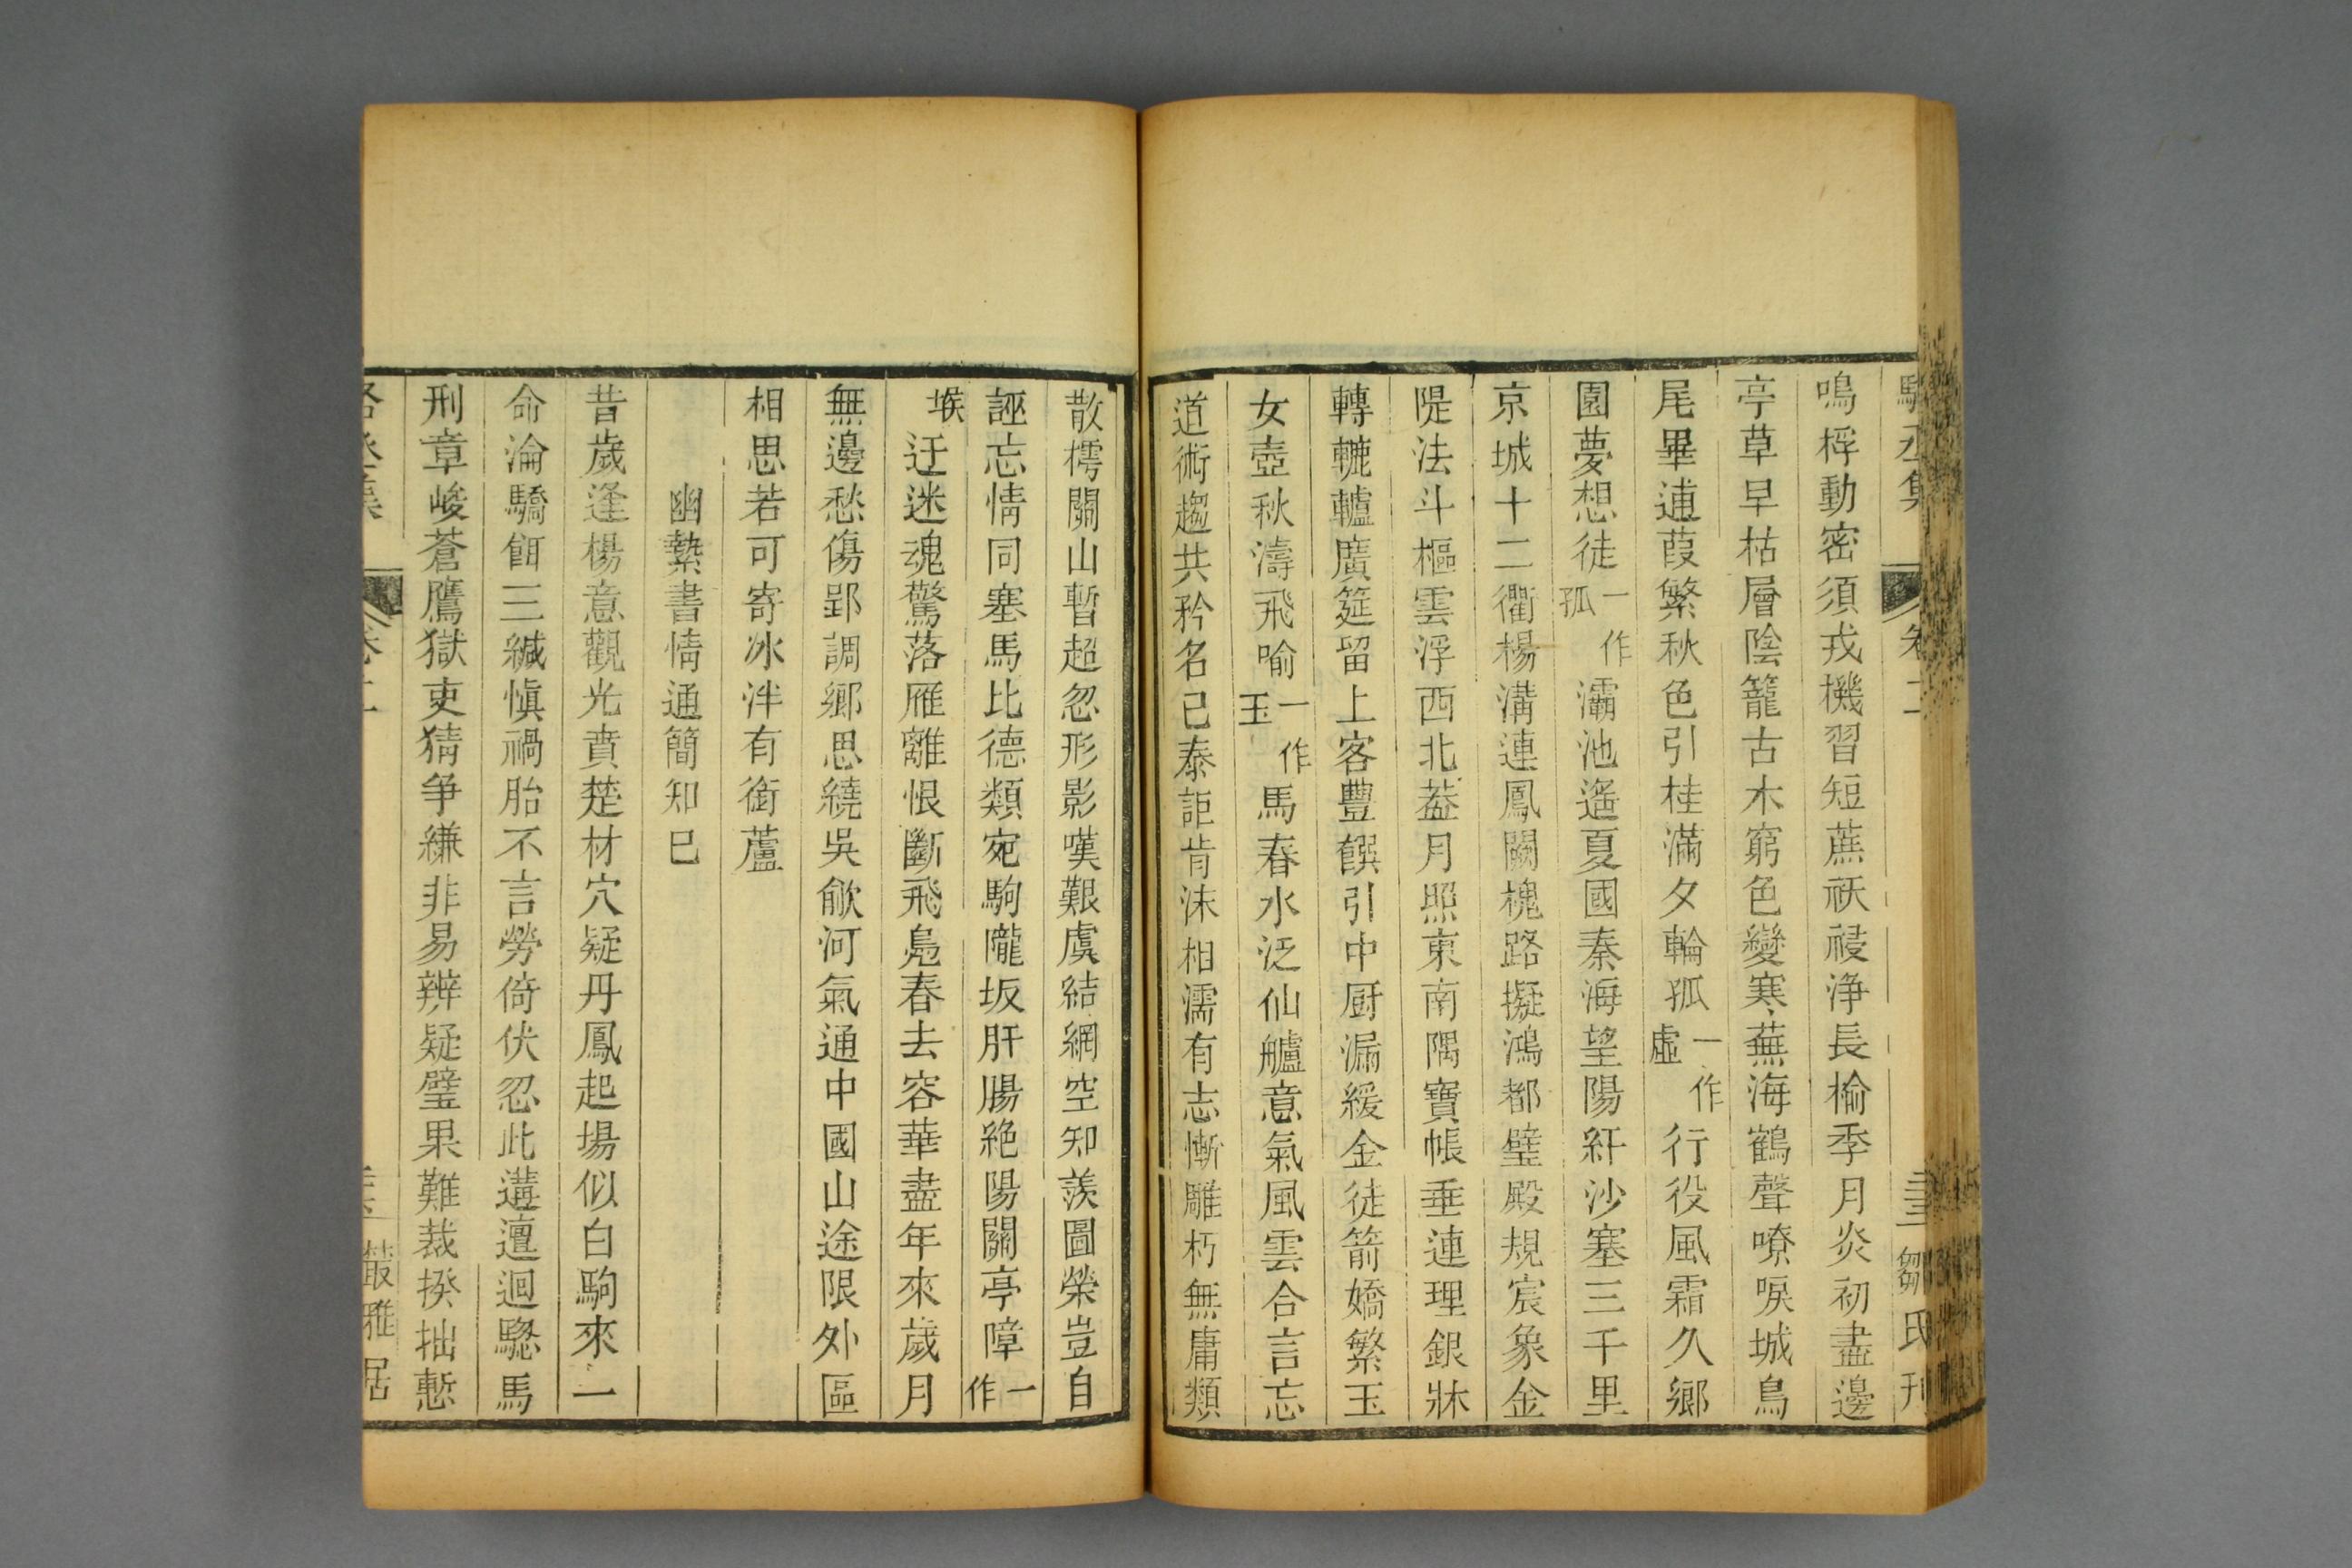 鳴桴動密須戎機習短蔗祅祲淨長榆季月炎初盡邊
亭草早枯層陰籠古木窮色變寒蕪海鶴聲嘹唳城烏
尾畢逋葭繁秋色引桂滿夕輪孤一作虛行役風霜久鄉
園夢想徒一作孤灞池遙夏國秦海望陽紆沙塞三千里
京城十二衢楊溝連鳳闕槐路擬鴻都璧殿規宸象金
隄法斗樞雲浮西北葢月照東南隅寶帳垂連理銀牀
轉轆轤廣筵留上客豐饌引中厨漏緩金徒箭嬌繁玉
女壺秋濤飛喻一作玉馬春水泛仙艫意氣風雲合言忘
道術趨共矜名已泰詎肯沫相濡有志慚雕朽無庸類
散樗關山暫超忽形影嘆艱虞結網空知羨圖榮豈自
誣忘情同塞馬比德類宛駒隴坂肝腸絶陽關亭障一作
堠迂迷魂驚落雁離恨斷飛鳧春去容華盡年來歲月
無邊愁傷郢調鄉思繞吳歈河氣通中國山途限外區
相思若可寄冰泮有銜蘆
幽縶書情通簡知己
昔歲逢楊意觀光賁楚材穴疑丹鳳起場似白駒來一
命淪驕餌三緘愼禍胎不言勞倚伏忍此遘邅迴驄馬
刑章峻蒼鷹獄吏猜爭縑非易辨疑璧果難裁揆拙慙
卷二
叢雅居